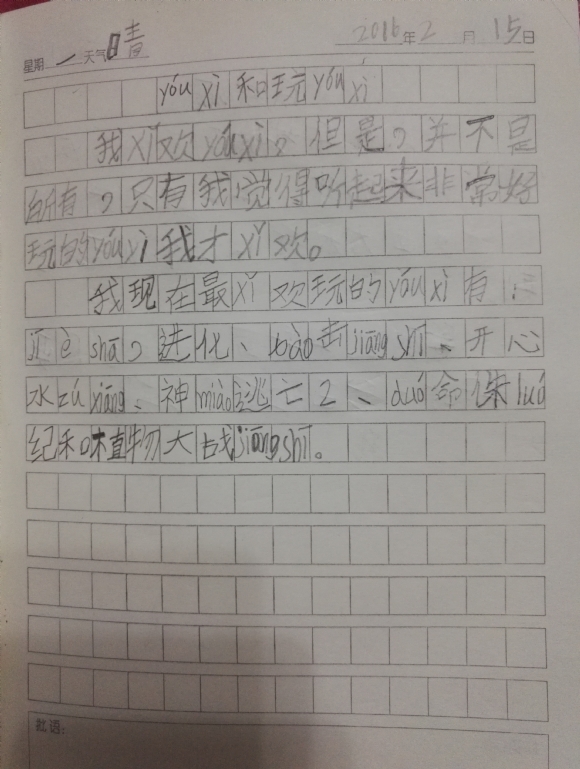 星期 一 天气 晴 2016年2月15日
yóu xì 和玩 yóu xì
我 xǐ 欢 yóu xì，但是，并不是
所有，只有我觉得听起来非常好
玩的 yóu xì 我才 xǐ 欢。
我现在最 xǐ 欢玩的 yóu xì 有：
jī è shā，进化、bào 击 jiāng shī、开心
水 zú xiāng、神 miào 逃亡2、duó 命侏 luó
纪和植物大战 jiāng shī。
批语：